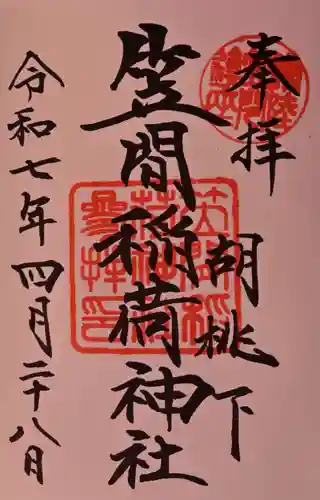 奉拝
胡桃下
笠間稲荷神社
令和七年四月二十八日